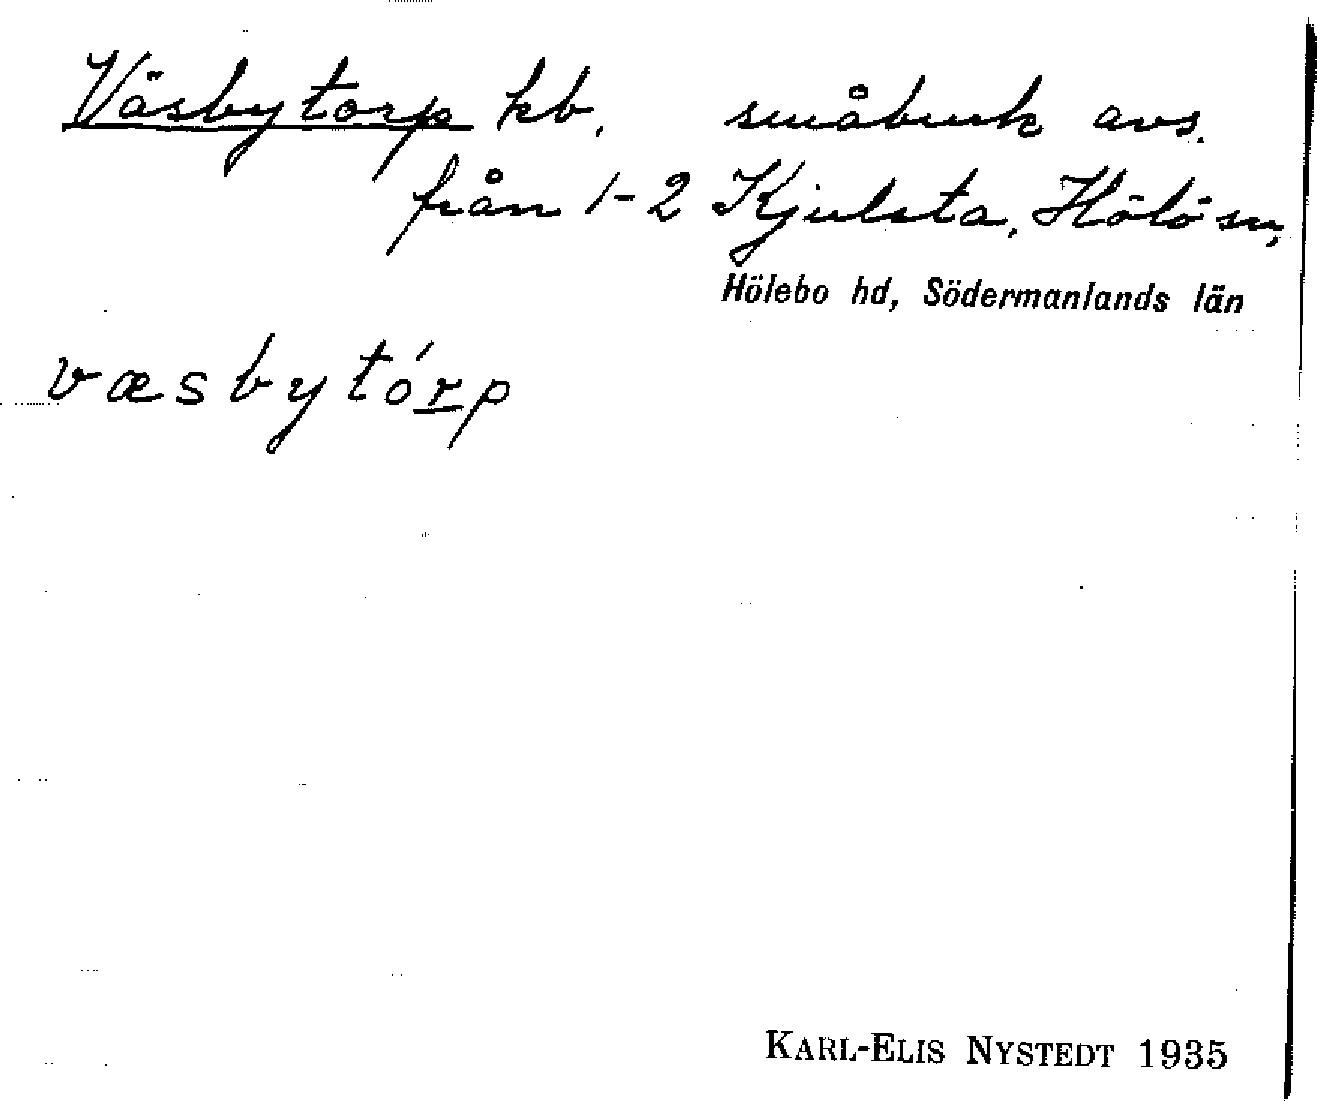 Väsbytorp kb, småbruk avs.
från 1-2 Kjulsta, Hölö sn,
Hölebo hd, Södermanlands län
væsbytórp
KARL-ELIS NYSTEDT 1935